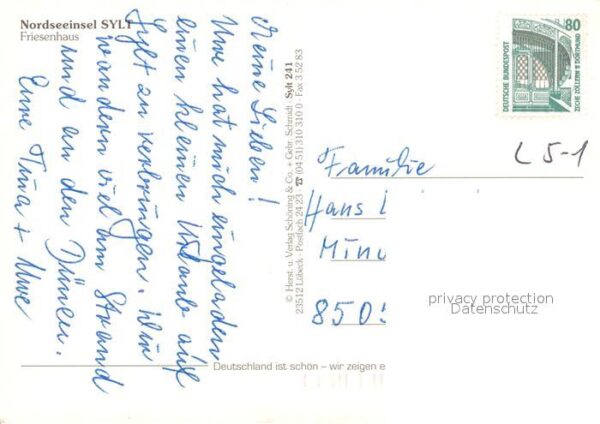 Nordseeinsel SYLT
Friesenhaus
Meine Lieben!
Uwe hat mich eingeladen
einen kleinen Urlaub auf
Sylt zu verbringen. Wir
wandern viel am Strand
und an den Dünen.
Eure Tina + Uwe
© Herst. u. Verlag Schöning & Co. + Gebr. Schmidt Sylt 241
23512 Lübeck · Postfach 24 23 · ☎ (04 51) 310 310 0 · Fax 3 52 83
80
DEUTSCHE BUNDESPOST
ZECHE ZOLLERN II DORTMUND
L 5-1
Familie
Hans
850
privacy protection
Datenschutz
Deutschland ist schön – wir zeigen e